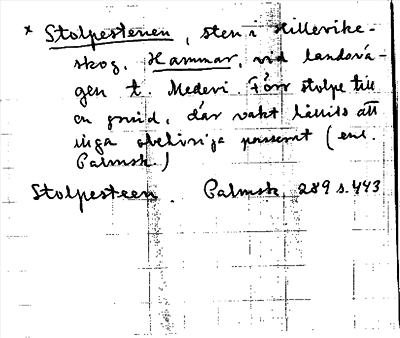 x Stolpestenen, sten i Hillerike-
skog, Hammar, vid landsvä-
gen t. Medevi. Förr stolpe till
en grind, där vakt hållits att
inga obehöriga passerat (enl.
Palmsk.)
Stolpesteen. Palmsk 289 s. 443